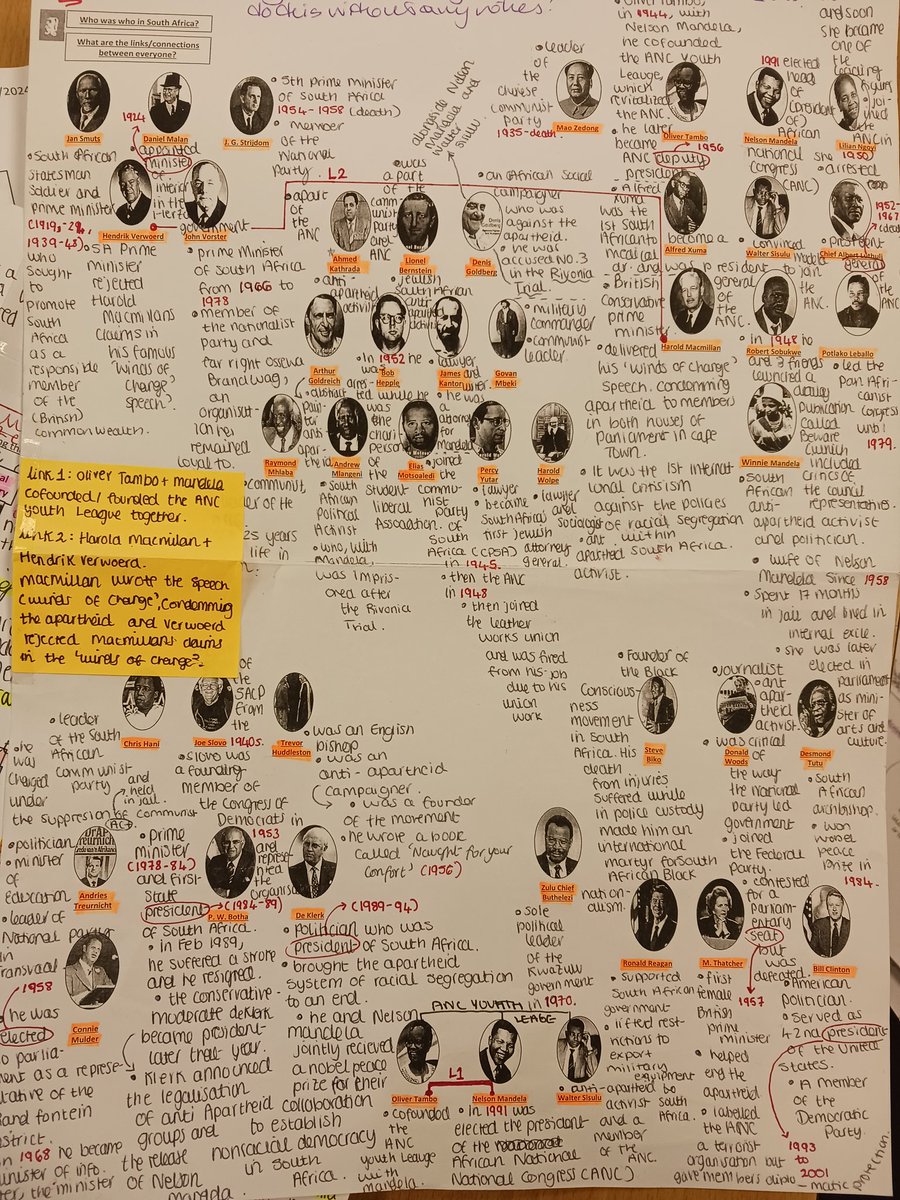 do this without any notes!
Who was who in South Africa?
What are the links/connections
between everyone?
Jan Smuts
• South African
Statesman
Soldier and
Prime minister
(1919-24,
1939-48)
who
sought to
promote
South
Africa
as a
responsible
member
of the
(British)
commonwealth.
1924
Daniel Malan
appointed
minister
of
interior
in the
government
J. G. Strijdom
• 5th prime minister
of South Africa
1954 - 1958 (death)
• member
of the
National
Party.
L2
Hendrik Verwoerd
• SA Prime
minister
rejected
Harold
Macmillans
claims in
his famous
'winds of
change'
speech.
John Vorster
prime Minister
of South Africa
from 1966 to
1978
• member of
the nationalist
party and
far right ossewa
Brandwag,
an
organisat-
ion he
remained
loyal to.
alongside Nelson
Mandela and
Walter
Sisulu
• leader
of
the
chinese
communist
party
1935-death.
Mao Zedong
Oliver Tambo,
in 1944, with
Nelson Mandela,
he cofounded
the ANC Youth
Leauge,
which
revitalized
the ANC.
• he later
became
ANC deputy
president
1956
Oliver Tambo
1991 elected
head
of
(president
of) African
national
congress
(ANC)
Nelson Mandela
and soon
she became
one of
the
leading
figures
joined
the
ANC in
1950
she
arrested
Lilian Ngoyi
• apart
of the
ANC
Ahmed
Kathrada
• anti-
apartheid
activist
• was
a part
of the
communist
Party
and
ANC
Lionel
Bernstein
• jewish
south African
anti
apartheid
activist
Denis
Goldberg
• an African Social
campaigner
who was
against the
apartheid.
• he was
accused NO.3
in the Rivonia
Trial.
• Alfred
Xuma
was the
1st South
African to
become a
medical
dr. and was president
general
of the
ANC.
Alfred Xuma
Walter Sisulu
• convinced
Mandela
to join
the
ANC.
1952-
1967
(death)
president
general
of
the ANC.
Chief Albert Luthuli
• British
conservative
prime
minister
• delivered
his 'winds of change'
speech. condemming
apartheid to members
in both houses of
Parliament in cape
Town.
• It was the 1st internat-
ional critisism
against the policies
of racial segregation
within
South Africa.
Harold Macmillan
Robert Sobukwe
• in 1948 he
and 3 friends
launched a
daily
publication
called
Beware
which
included
critics of
the council
representatives.
Potlako Leballo
• led the
Pan Afri-
canist
Congress
until
1979.
Arthur
Goldreich
• abstract
painter
anti
apartheid.
Bob
Hepple
• In 1952 he
was
arrested while he
was
the
chair-
person
of the
Student
liberal
Association.
James
Kantor
• lawyer
writer
• he was
a
attorney
for
Mandela
Govan
Mbeki
• military
commander
• communist
leader.
Raymond
Mhlaba
• communist,
25 years
life in
Andrew
Mlangeni
• South
African
Political
Activist
• who, with
Mandela,
was impris-
oned after
the Rivonia
Trial.
Elias
Motsoaledi
• joined
the
communist
Party
of
South
Africa (CPSA)
in 1945.
• then the ANC
in 1948
• then joined
the leather
works union
and was fired
from his job
due to his
union
work
Percy
Yutar
• lawyer
• became
South African's
first jewish
attorney
general.
Harold
Wolpe
• lawyer
Sociologist
• anti
apartheid
activist.
Winnie Mandela
• South
African
anti-
apartheid activist
and politician.
• wife of Nelson
Mandela since 1958
• spent 17 months
in jail and lived in
internal exile.
• she was later
elected in
parliament
as mini-
ster of
arts and
culture.
Link 1: Oliver Tambo + mandela
cofounded/ founded the ANC
youth League together.
Link 2: Harola Macmillan +
Hendrik verwoerd.
Macmillan wrote the speech
'winds of change', condemming
the apartheid and verwoerd
rejected macmillans claims
in the 'winds of change'.
Chris Hani
• leader
of the South
African
communist
party and
• he
was
charged
under
the suppression of communist
Act
held
in jail.
Joe Slovo
of
the
SACP
from
the
1940s.
• Slovo was
a founding
member of
the Congress of
Democrats in
1953
and
represe-
nted
the
organisation
Trevor
Huddleston
• was an English
bishop
• was an
anti-apartheid
campaigner.
• was a founder
of the movement
• he wrote a book
called 'Naught for your
confort' (1956)
• Founder of
the Black
Conscious-
ness
movement
in South
Africa. His
death
from injuries
suffered while
in police custody
made him an
international
martyr for South
African Black
nation-
alism.
Steve
Biko
• journalist
• anti
apar-
theid
activist.
Donald
Woods
• was critical
of
the way
the national
party led
government
• joined
the Federal
Party.
• contested
for a
parliam-
entary
seat
but
was
defeated.
1957
Desmond
Tutu
• South
African
archbishop.
• won
nobel
peace
prize in
1984.
• politician
• minister
of
Education
• leader of
National party
in
Transvaal
Andries
Treurnicht
• prime
minister
(1978-84)
and first
state
president → (1984-89)
of South Africa.
• in Feb 1989,
he suffered a stroke
and he resigned.
• the conservative-
moderate deKlerk
became president
later that year.
P. W. Botha
De Klerk
(1989-94)
• politician who was
president of South Africa.
• brought the apartheid
system of racial segregation
to an end.
• he and Nelson
mandela
jointly recieved
a nobel peace
prize for their
collaboration
to establish
nonracial democracy
in South
Africa.
• Klerk announced
the legalisation
of anti Apartheid
groups and
the release
of Nelson
mandela.
1958
• he was
elected
to parlia-
ment as a represe-
ntative of the
Randfontein
district.
in 1968 he became
minister of info.
Connie
Mulder
Zulu Chief
Buthelezi
• sole
political
leader
of the
Kwazulu
government
in 1970.
Ronald Reagan
• supported
South African
government
• lifted rest-
rictions to
export
military
equipment
to
South Africa.
M. Thatcher
• first
female
British
prime
minister
• helped
end the
apartheid.
• labelled
the ANC
a terrorist
organisation but
gave members diplo-matic protection.
Bill Clinton
• American
politician.
• Served as
42nd president
of the United
States.
• A member
of the
Democratic
Party.
1993
to
2001
ANC YOUTH
LEAGE
L1
Oliver Tambo
• cofounded
the
ANC
youth Leauge
with
mandela.
Nelson Mandela
• In 1991 was
elected the president
of the
African National
National Congress (ANC)
Walter Sisulu
• anti-apartheid
activist
and a
member
of the
ANC.